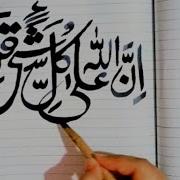 إِنَّ اللّٰهَ عَلٰى كُلِّ شَىْ